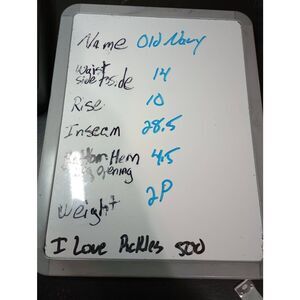 Name Old Navy
Waist
side to side 14
Rise 10
Inseam 28.5
Bottom Hem 4.5
Leg Opening
Weight 2P
I Love Pickles 500